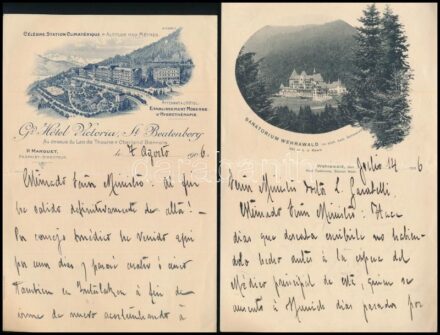 CÉLÈBRE STATION CLIMATÉRIQUE
ALTITUDE 1150 MÈTRES
ATTENANT À L'HÔTEL
ÉTABLISSEMENT MODERNE
D'HYDROTHÉRAPIE
Gd. Hôtel Victoria, St. Beatenberg
Au dessus du Lac de Thoune • Oberland Bernois
H. MARGUET,
PROPRIÉT.-DIRECTEUR.
4 Agosto 1906.
Estimado Señor Ministro! Al fin
he salido definitivamente de alta! —
Por consejo médico he venido aqui
por unos dias y pasaré cuatro ó cinco
tambien en Interlaken á fin de
irme de nuevo acostumbrando á
SANATORIUM WEHRAWALD
Wehrawald, den Julio 14 1906
Señor Ministro
Estimado Señor Ministro: Hace
dias que deseaba escribirle no habien-
dolo hecho antes á la espera del
Médico principal de esté, quien se
ausentó á Munich dias pasados por